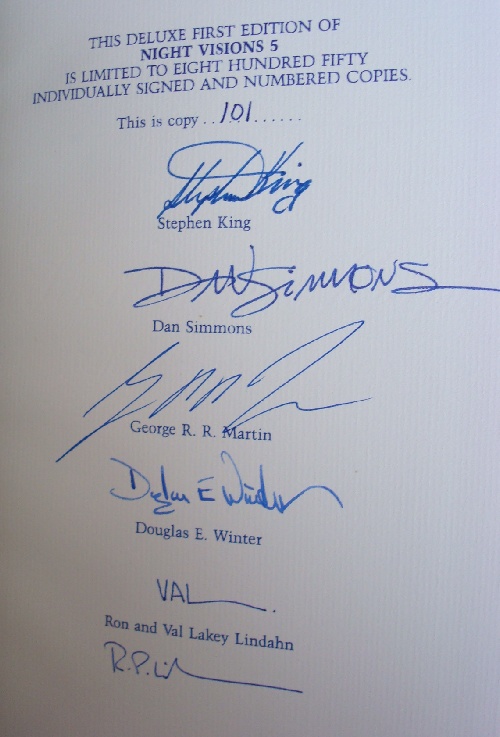 THIS DELUXE FIRST EDITION OF
NIGHT VISIONS 5
IS LIMITED TO EIGHT HUNDRED FIFTY
INDIVIDUALLY SIGNED AND NUMBERED COPIES.
This is copy . . 101 . . . . . .
Stephen King
Stephen King
Dan Simmons
Dan Simmons
George R. R. Martin
Douglas E Winter
Douglas E. Winter
VAL
Ron and Val Lakey Lindahn
R.P.Li